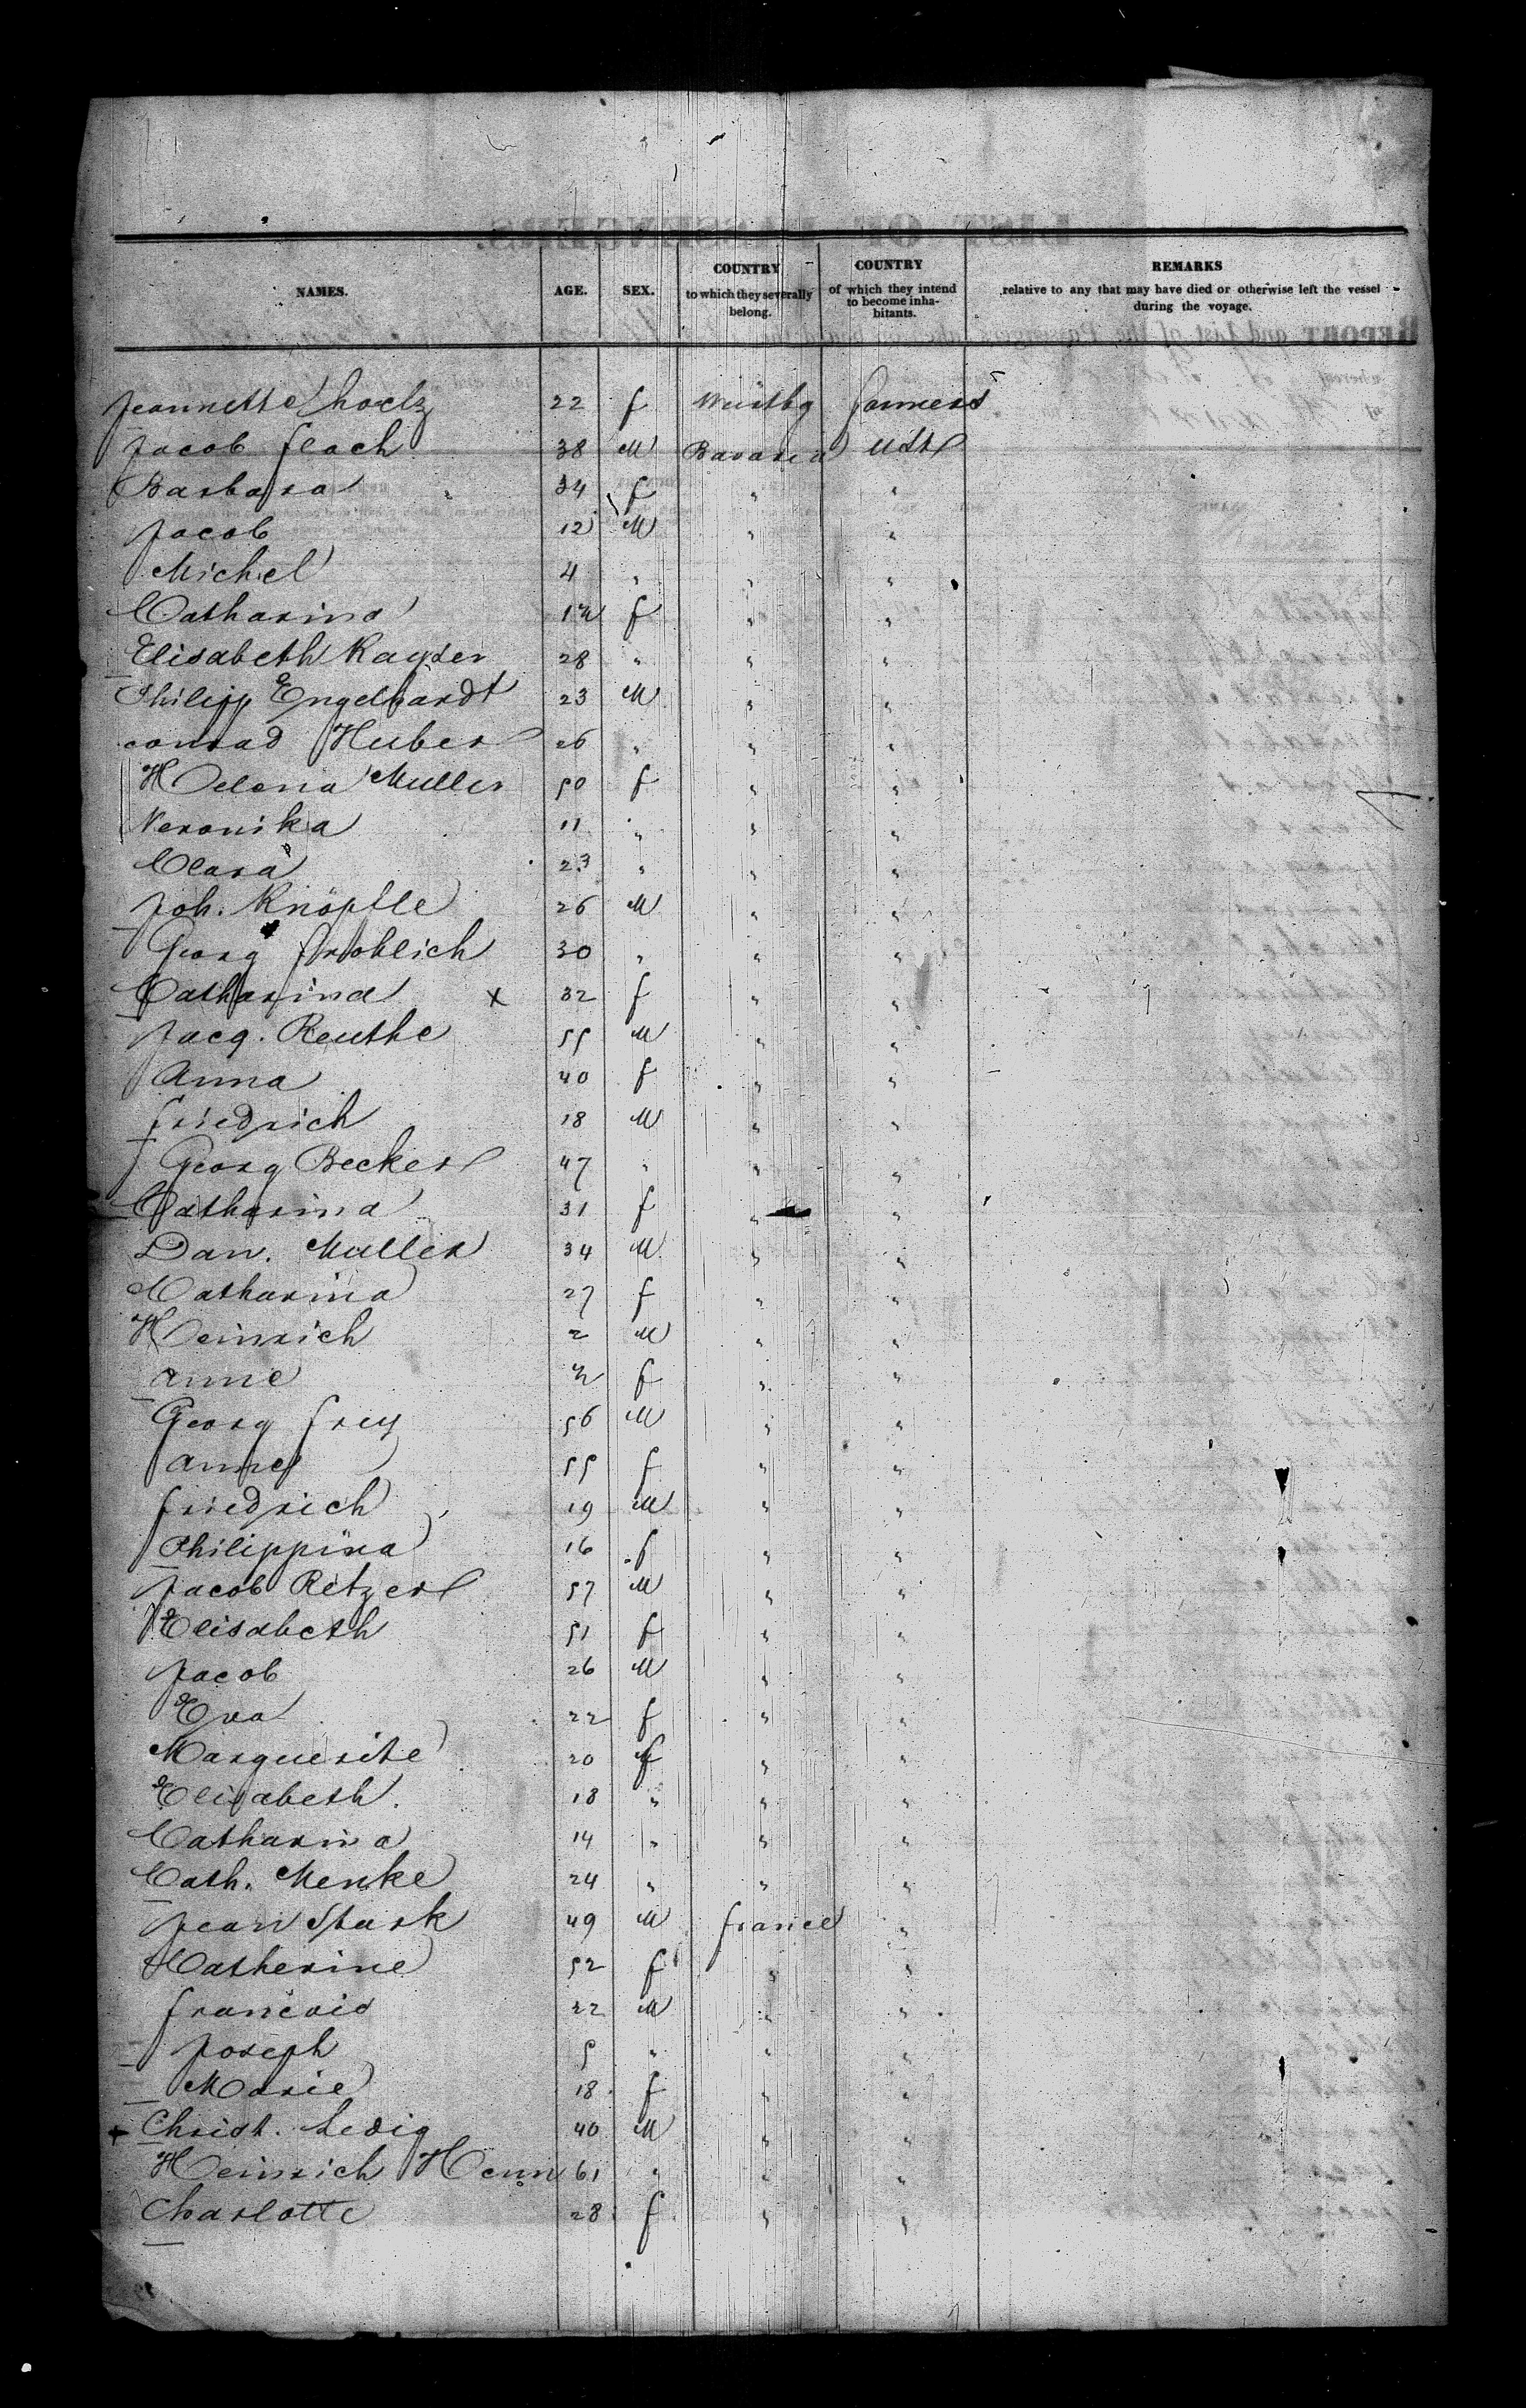 NAMES. AGE. SEX. COUNTRY to which they severally belong. COUNTRY of which they intend to become inhabitants. REMARKS relative to any that may have died or otherwise left the vessel during the voyage.
Jeannette 22 f Würtbg farmers
Jacob Flach 38 M Bavaria USt
Barbara 34 f " "
Jacob 12 M " "
Michel 4 " " "
Catharina f " "
Elisabeth Kayser 28 " " "
Philipp Engelhardt 23 M " "
Conrad Huber 26 " " "
Helena Muller 50 f " "
Veronika 11 " " "
Clara 23 " " "
Joh. Knöpfle 26 M " "
Georg Frohlich 30 " " "
Catharina x 32 f " "
Jacq. Reuthe 55 M " "
Anna 40 f " "
Friedrich 18 M " "
Georg Becker 47 " " "
Catharina 31 f " "
Dan. Muller 34 M " "
Catharina 27 f " "
Heinrich 2 M " "
Anne f " "
Georg Frey 56 M " "
Anne 55 f " "
Friedrich 19 M " "
Philippina 16 f " "
Jacob Retzer 57 M " "
Elisabeth 51 f " "
Jacob 26 M " "
Eva 22 f " "
Marguerite 20 f " "
Elisabeth. 18 " " "
Catharina 14 " " "
Cath. Menke 24 " " "
Jean Stark 49 M France "
Catherine 52 f " "
Francois 22 M " "
Joseph 5 " " "
Marie 18 f " "
Christ. Ledig 40 M " "
Heinrich Henn 61 " " "
Charlotte 28 f " "